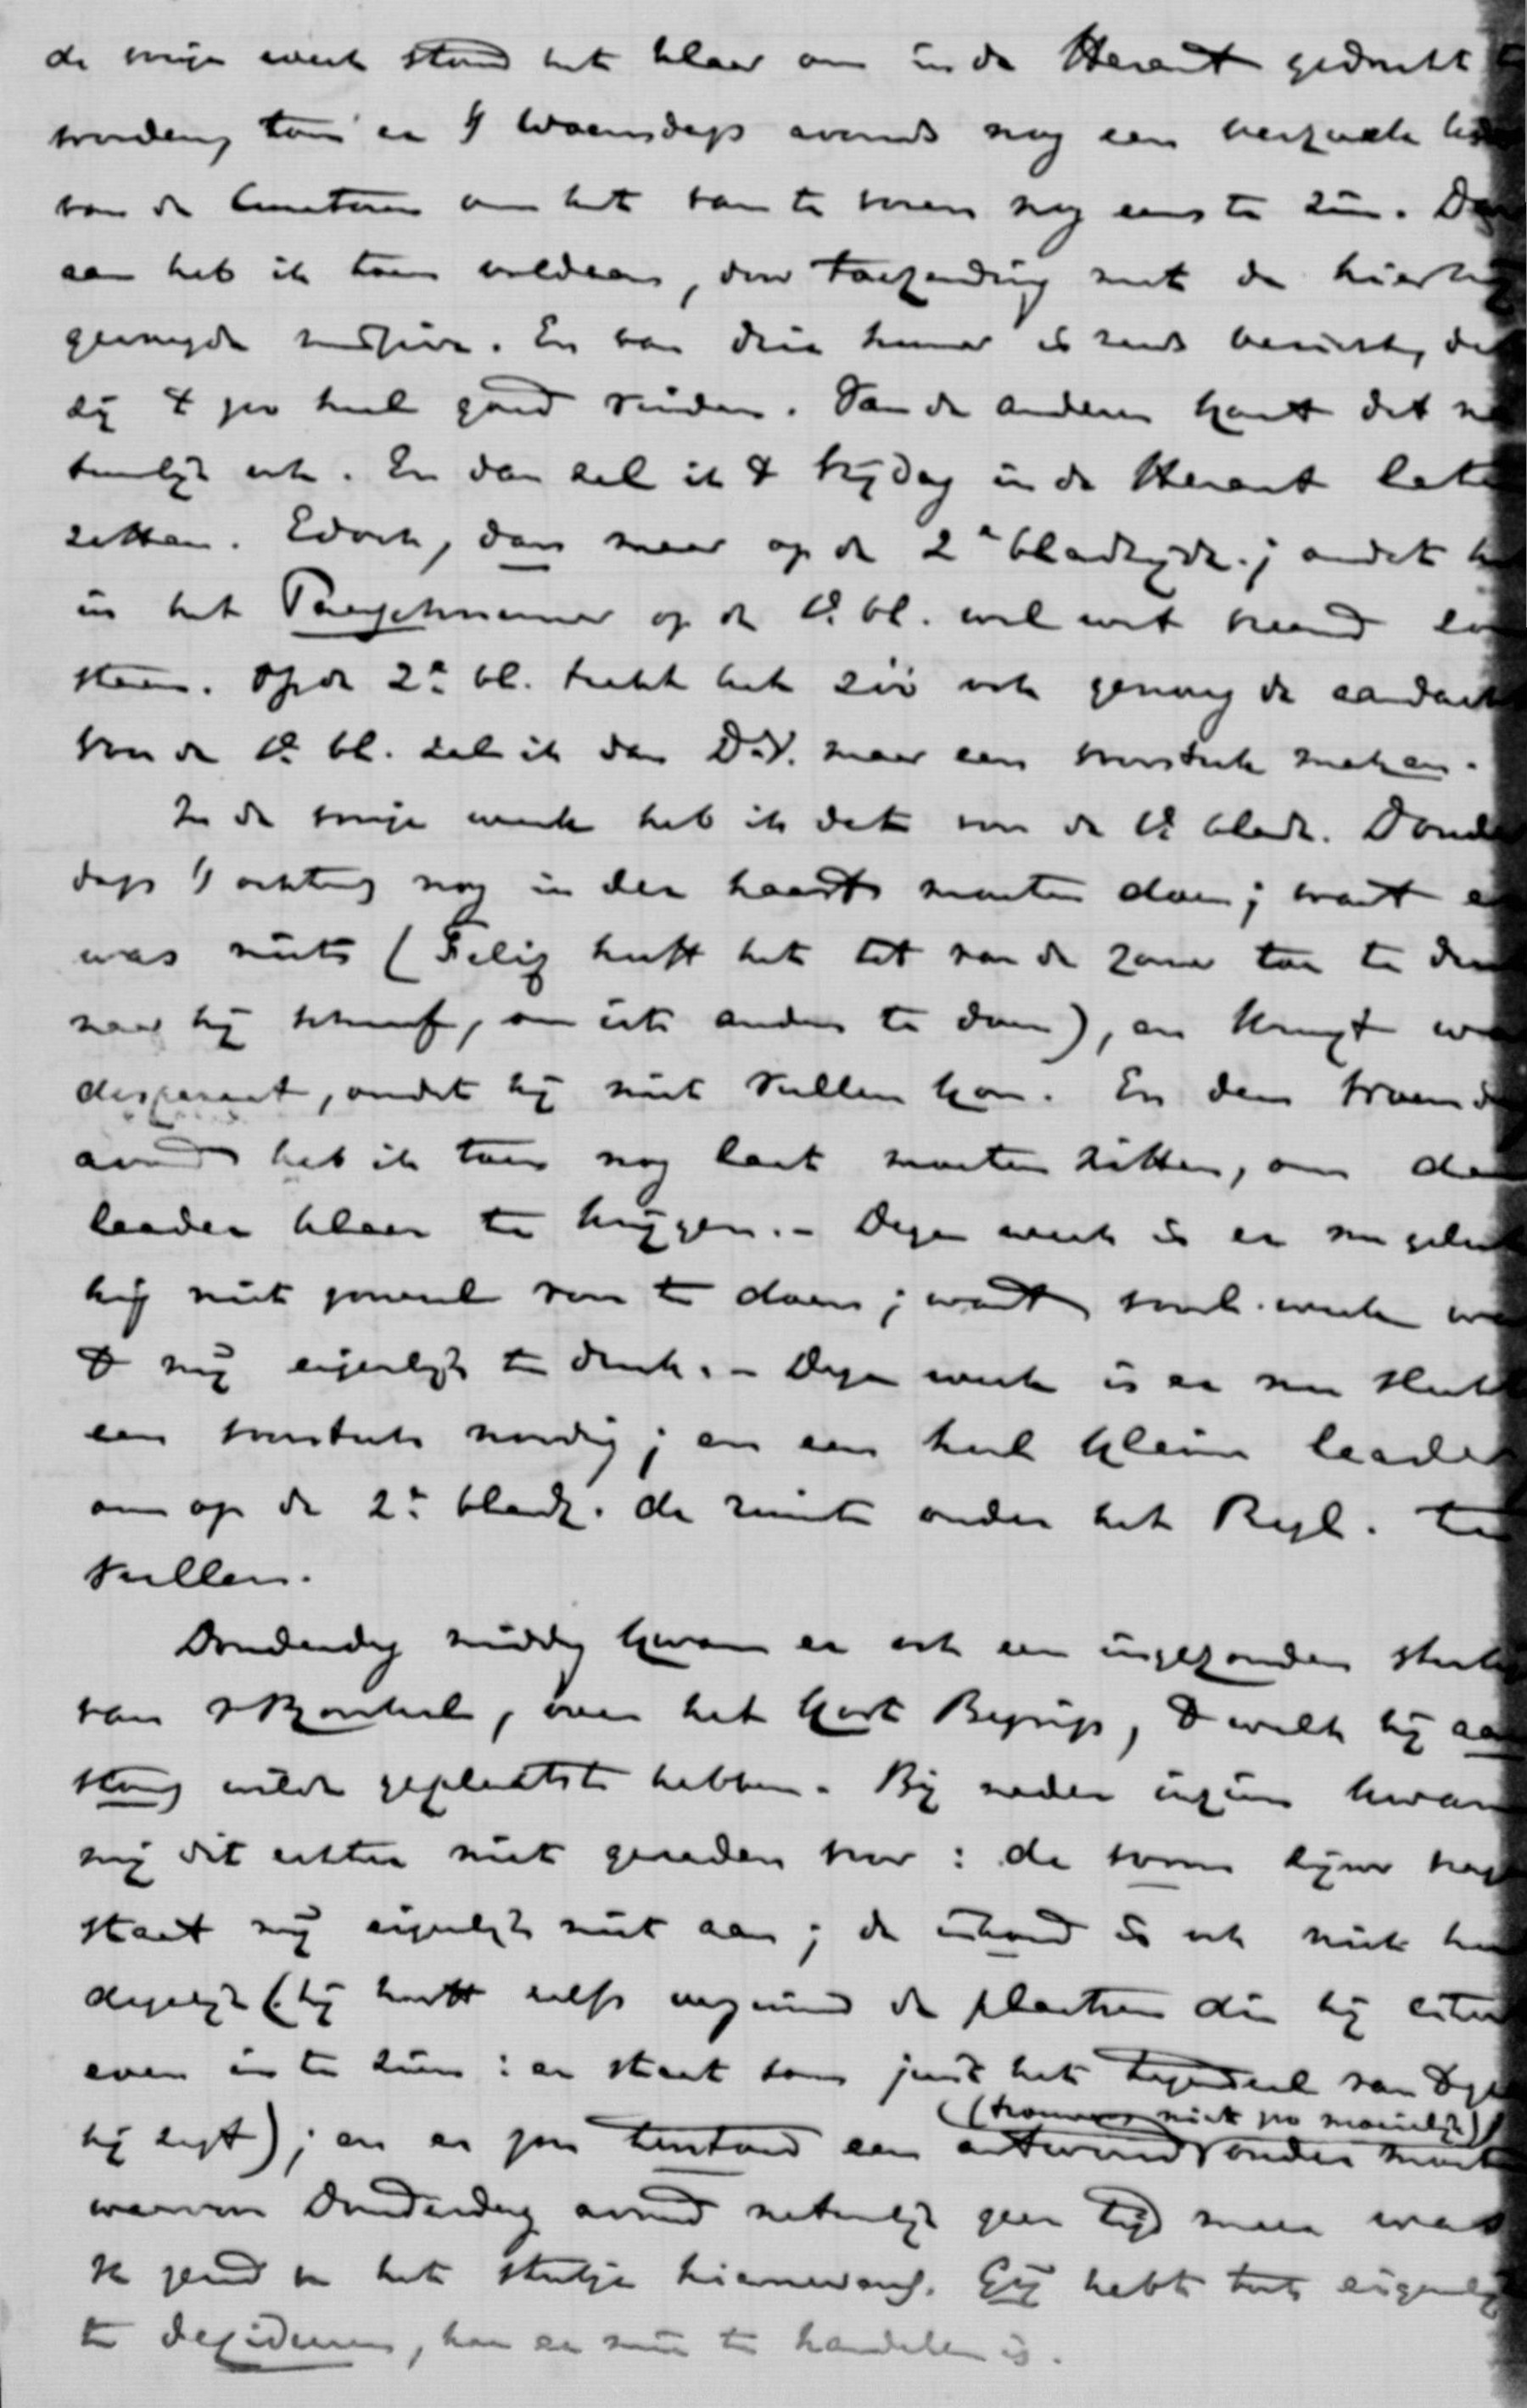 de vorige week stond het klaar om in de Heraut gedrukt te
worden, toen er 's Woensdags avonds nog een verzoek
van de Curatoren om het van te voren nog eens te zien. Daar
aan heb ik toen voldaan, door toezending met de hierbij
gevoegde missive. En van drie hunner is reeds bericht, dat
zij 't zoo heel goed vinden. Van de anderen komt dat na
tuurlijk ook. En dan zal ik 't Vrijdag in de Heraut laten
zetten. Edoch, dan maar op de 2e bladzijde; omdat het
in het Paaschnummer op de 1e bl. wel wat vreemd zou
staan. Op de 2e bl. trekt het zóó ook genoeg de aandacht
Voor de 1e bl. zal ik dan D.V. maar een voorstuk maken.
In de vorige week heb ik dat voor de 1e bladz. Donder
dags 's ochtends nog in der haast moeten doen; want er
was niets (Felix heeft het tot van de zomer toe te druk
naar hij schreef, om iets anders te doen), en Kruyt was
desperaat, omdat hij niet vullen kon. En den Woensdag
avond heb ik toen nog laat moeten zitten, om den
leader klaar te krijgen. – Deze week is er nu geluk
kig niet zooveel voor te doen; want vorige week was
't mij eigenlijk te druk. – Deze week is er nu slechts
een voorstuk noodig; en een heel kleine leader
om op de 2e bladz. de ruimte onder het Regl. te
vullen.
Donderdag middag kwam er ook een ingezonden stukje
van , over het Kort Begrip, 't welk hij aan
stonds wilde geplaatst hebben. Bij nader inzien kwam
mij dit echter niet geraden voor: de vorm zijner
staat mij eigenlijk niet aan; de inhoud is ook niet
degelijk (hij heeft zelfs verzuimd de plaatsen die hij citeert
even in te zien: er staat soms juist het tegendeel van 'tgeen
hij zegt); en er zou terstond een antwoord (trouwens niet zoo moeielijk) onder moeten
waarvoor Donderdag avond natuurlijk geen tijd meer was
Ik zend u het stukje hiernevens. Gij hebt toch eigenlijk
te decideeren, hoe er mee te handelen is.